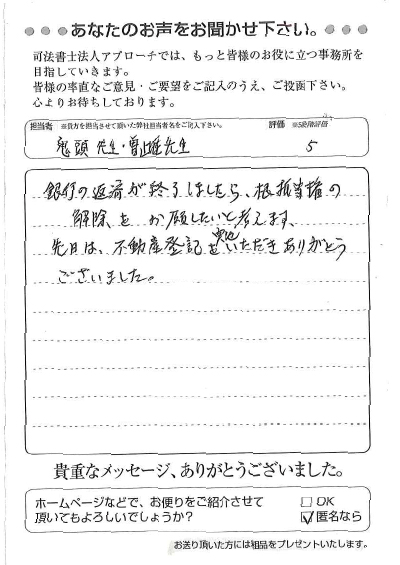 ●●●あなたのお声をお聞かせ下さい。●●●
司法書士法人アプローチでは、もっと皆様のお役に立つ事務所を
目指していきます。
皆様の率直なご意見・ご要望をご記入のうえ、ご投函下さい。
心よりお待ちしております。
担当者 ※貴方を担当させて頂いた弊社担当者名をご記入下さい。 評価 ※5段階評価
鬼頭 先生・ 先生 5
銀行の返済が終了しましたら、根抵当権の
解除を お願したいと考えます、
先日は、不動産登記をいただきありがとう
ございました。
貴重なメッセージ、ありがとうございました。
ホームページなどで、お便りをご紹介させて
頂いてもよろしいでしょうか?
□ OK
☑ 匿名なら
お送り頂いた方には粗品をプレゼントいたします。